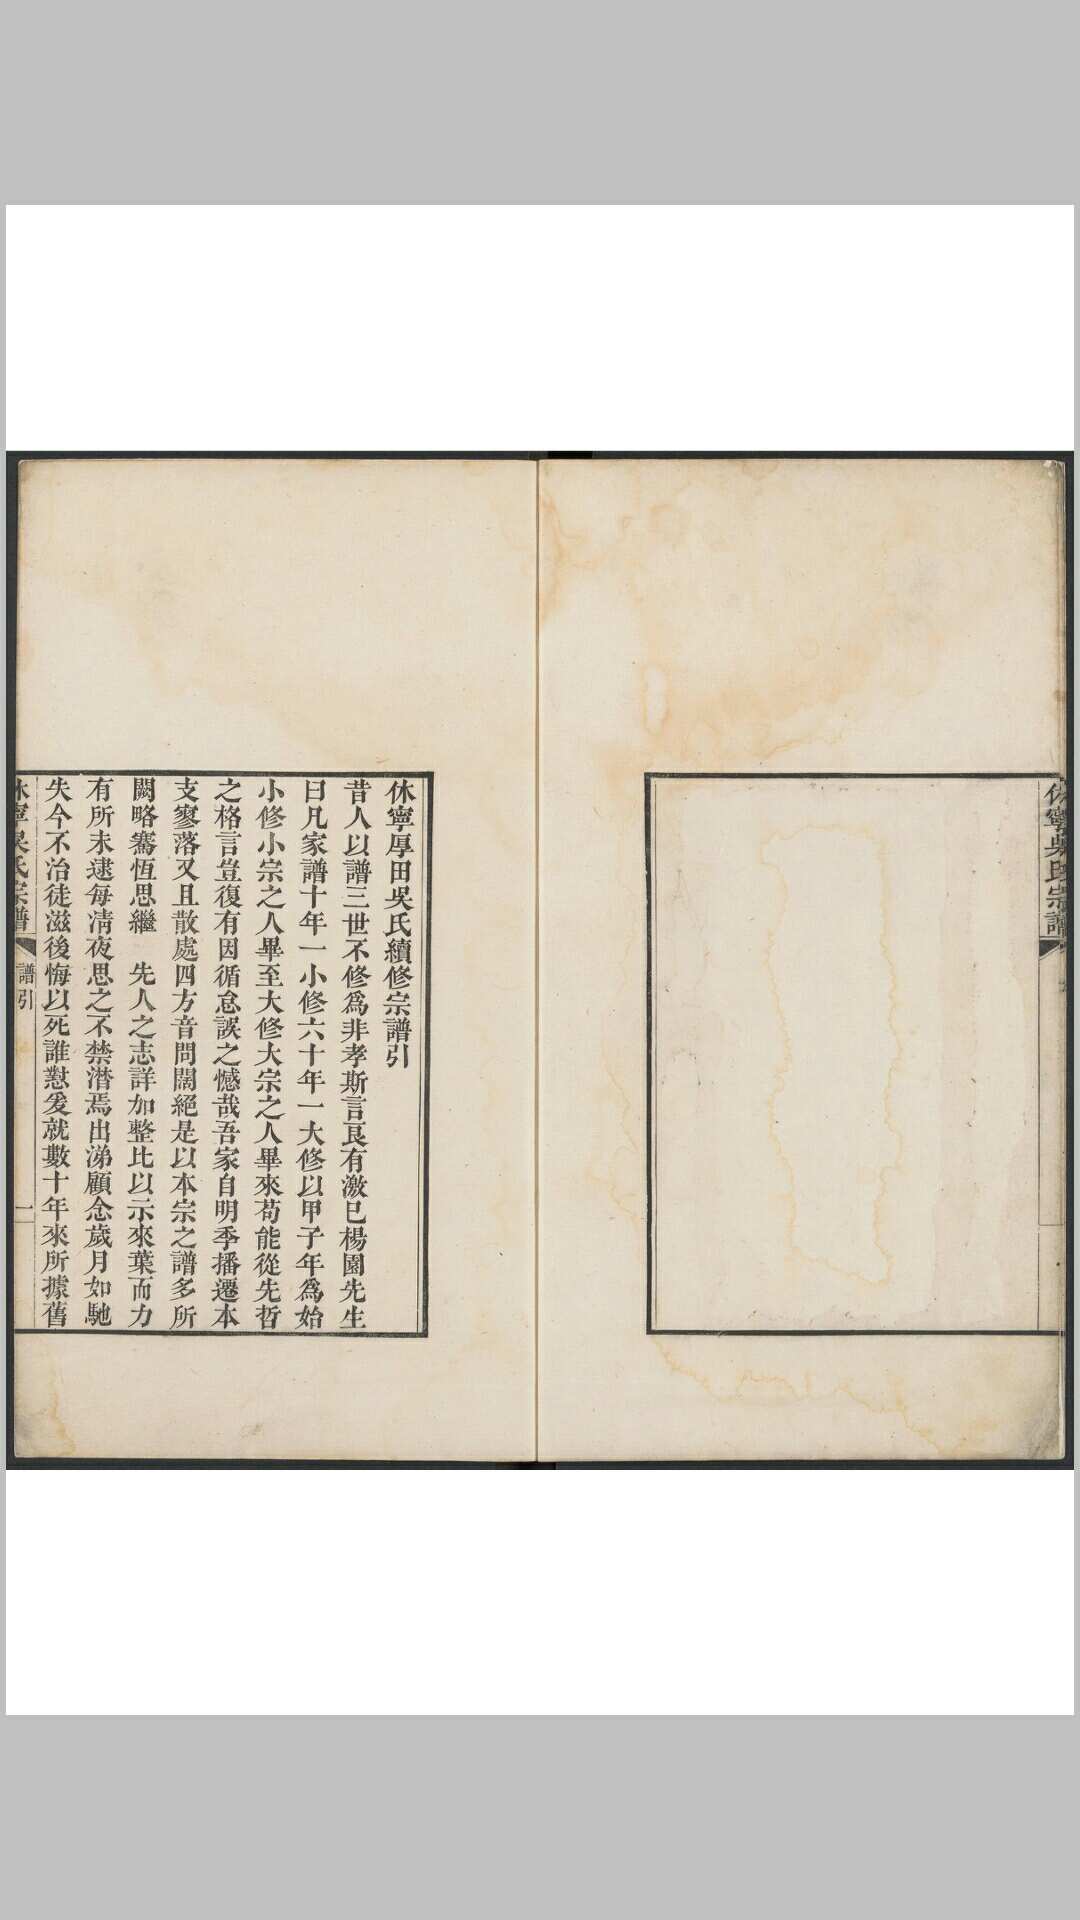 休寧吳氏宗譜
休寧厚田吳氏續修宗譜引
昔人以譜三世不修爲非孝斯言良有激已楊園先生
曰凡家譜十年一小修六十年一大修以甲子年爲始
小修小宗之人畢至大修大宗之人畢來苟能從先哲
之格言豈復有因循怠誤之憾哉吾家自明季播遷本
支寥落又且散處四方音問闊絕是以本宗之譜多所
闕略騫恆思繼　先人之志詳加整比以示來葉而力
有所未逮每凊夜思之不禁潸焉出涕顧念歲月如馳
失今不治徒滋後悔以死誰懟爰就數十年來所據舊
休寧吳氏宗譜　譜引　一